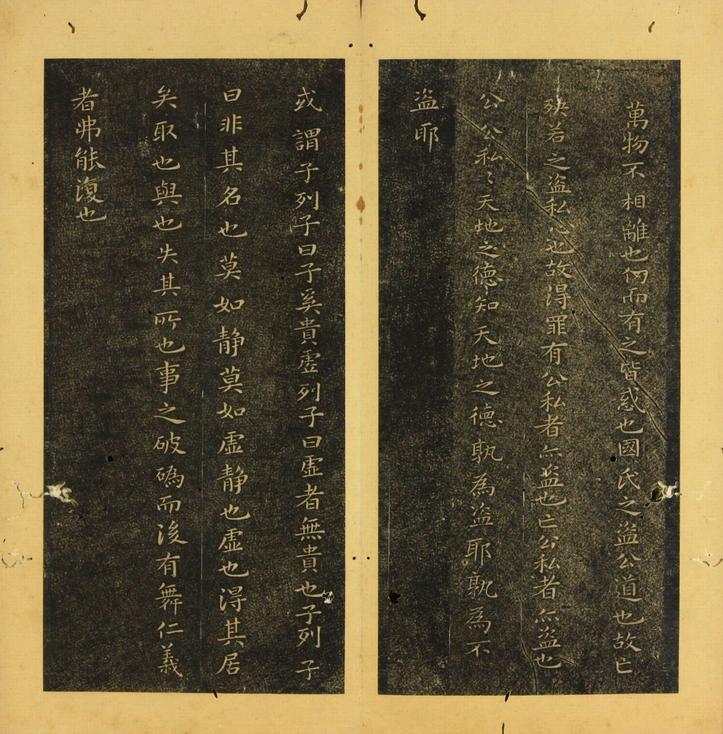 萬物不相離也仞而有之皆惑也國氏之盜公道也故亡
殃若之盜私心也故得罪有公私者亦盜也亡公私者亦盜也
公公私〻天地之德知天地之德孰為盜耶孰為不
盜耶
或謂子列子曰子奚貴虛列子曰虛者無貴也子列子
曰非其名也莫如靜莫如虛靜也虛也得其居
矣取也與也失其所也事之破䃣而後有舞仁義
者弗能復也